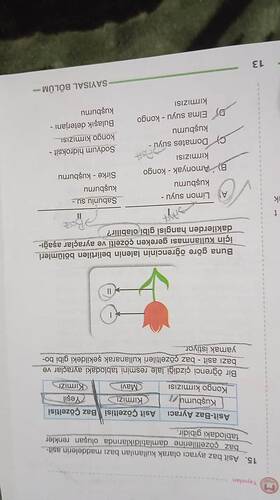 Yayınları
15. Asit baz ayracı olarak kullanılan bazı maddelerin asit-
baz çözeltilerine damlatıldıklarında oluşan renkler
tablodaki gibidir.
Asit-Baz Ayracı Asit Çözeltisi Baz Çözeltisi
Kuşburnu Kırmızı Yeşil
Kongo kırmızısı Mavi Kırmızı
Bir öğrenci çizdiği lale resmini tablodaki ayraçlar ve
bazı asit - baz çözeltileri kullanarak şekildeki gibi bo-
yamak istiyor.
I
II
Buna göre öğrencinin lalenin belirtilen bölümleri
için kullanması gereken çözelti ve ayraçlar aşağı-
dakilerden hangisi gibi olabilir?
I II
Asit Baz
A) Limon suyu - kuşburnu Sabunlu su - kuşburnu
B) Amonyak - kongo kırmızısı Sirke - kuşburnu
C) Domates suyu - kuşburnu Sodyum hidroksit - kongo kırmızısı
D) Elma suyu - kongo kırmızısı Bulaşık deterjanı - kuşburnu
13
SAYISAL BÖLÜM